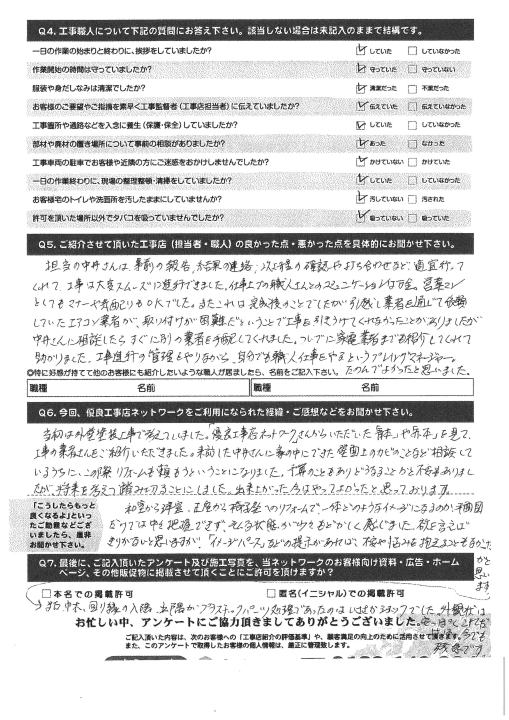 Q4. 工事職人について下記の質問にお答え下さい。該当しない場合は未記入のままで結構です。
一日の作業の始まりと終わりに、挨拶をしていましたか? ☑していた □していなかった
作業開始の時間は守っていましたか? ☑守っていた □守っていない
服装や身だしなみは清潔でしたか? ☑清潔だった □不潔だった
お客様のご要望やご指摘を素早く工事監督者(工事店担当者)に伝えていましたか? ☑伝えていた □伝えていなかった
工事箇所や通路などを入念に養生(保護・保全)していましたか? ☑していた □していなかった
部材や廃材の置き場所について事前の相談がありましたか? ☑あった □なかった
工事車両の駐車でお客様や近隣の方にご迷惑をおかけしませんでしたか? ☑かけていない □かけていた
一日の作業終わりに、現場の整理整頓・清掃をしていましたか? ☑していた □していなかった
お客様宅のトイレや洗面所を汚したままにしていませんか? ☑汚していない □汚された
許可を頂いた場所以外でタバコを吸っていませんでしたか? ☑吸っていない □吸っていた
Q5. ご紹介させて頂いた工事店(担当者・職人)の良かった点・悪かった点を具体的にお聞かせ下さい。
担当の中井さんは事前の報告、結果の連絡、次工程の確認や打ち合わせなど、適宜行って
くれて、工事は大変スムーズに進行できました。仕事上での職人さんとのコミュニケーションは万全。営業マン
としてもマナーや気配りもOKでした。またこれは交換後のことでしたが引越し業者を通して依頼
していたエアコン業者が、取り付けが困難だということで工事を引きうけてくれなかったことがありましたが
中井さんに相談したらすぐに別の業者を手配してくれました。ついでに家電業者までも紹介してくれて
助かりました。工事進行の管理をやりながら、自分でも職人仕事をやるというプレイングマネージャー。
◎特に好感が持てて他のお客様にも紹介したいような職人が居ましたら、名前をご記入下さい。 たのんでよかったと思いました。
職種 名前 職種 名前
Q6. 今回、優良工事店ネットワークをご利用になられた経緯・ご感想などをお聞かせ下さい。
当初は外壁塗装工事で考えていました。「優良工事店ネットワークさんからいただいた「青本」や「赤本」を見て、
工事の業者さんをご紹介いただきました。来訪した中井さんに家の中にできた壁面上のカビのことなど相談して
いるうちに、この際リフォームも頼もうということになりました。予算のこともありどうなることかと不安もありまし
たが、将来を考えて踏み切ることにしました。出来上がった今はやってよかったと思っております。
「こうしたらもっと
良くなるよ」といっ
たご助言などござ
いましたら、是非
お聞かせ下さい。
和室から洋室、玄座から椅子座へのリフォームで一体どのようなイメージになるのか平面図
だけでは中々把握できず、そんな状態が少々もどかしく感じました。欲を言えば
きりがないと思いますが「イメージパース」などの提示があれば、不安や悩みを抱えることもなかった
かと
思い
ます
Q7. 最後に、ご記入頂いたアンケート及び施工写真を、当ネットワークのお客様向け資料・広告・ホーム
ページ、その他販促物に掲載させて頂くことにご許可を頂けますか?
□本名での掲載許可 □匿名(イニシャル)での掲載許可
お忙しい中、アンケートにご協力頂きましてありがとうございました。
ご記入頂いた内容は、次のお客様への「工事店紹介の評価基準」や、顧客満足の向上のために活用させて頂きます。
また、このアンケートで取得したお客様の個人情報は、厳正に管理致します。